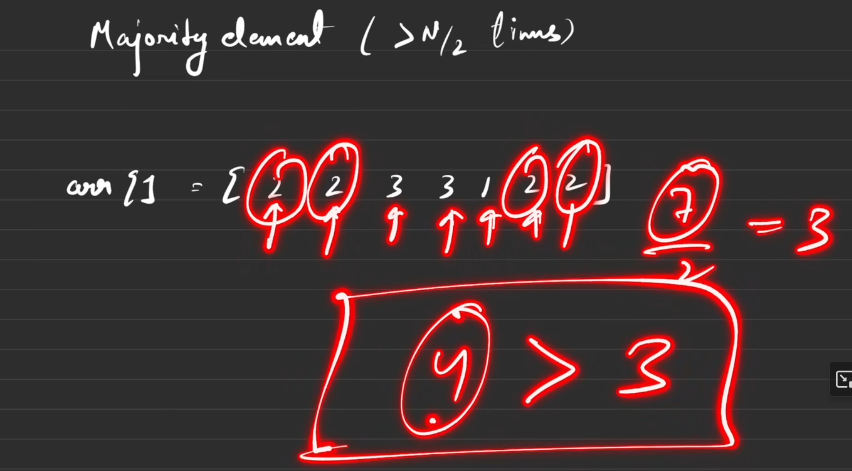 Majority element ( >N/2 times)
arr[] = [ 2 2 3 3 1 2 2 ]
7/2 = 3
4 > 3